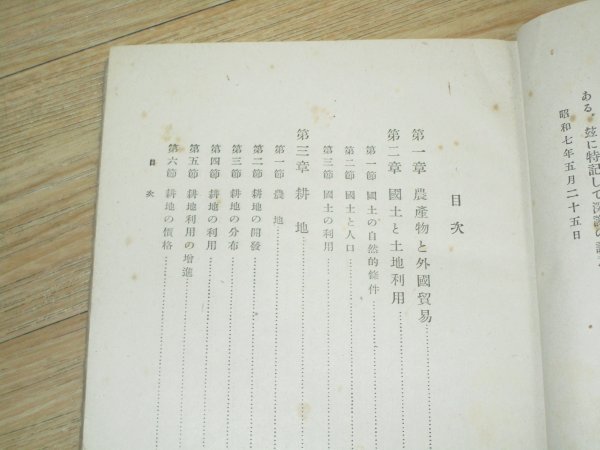 ある、玆に特記して深謝の
昭和七年五月二十五日
目次
第一章 農產物と外國貿易
第二章 國土と土地利用
第一節 國土の自然的條件
第二節 國土と人口
第三節 國土の利用
第三章 耕地
第一節 農地
第二節 耕地の開發
第三節 耕地の分布
第四節 耕地の利用
第五節 耕地利用の增進
第六節 耕地の價格
目次